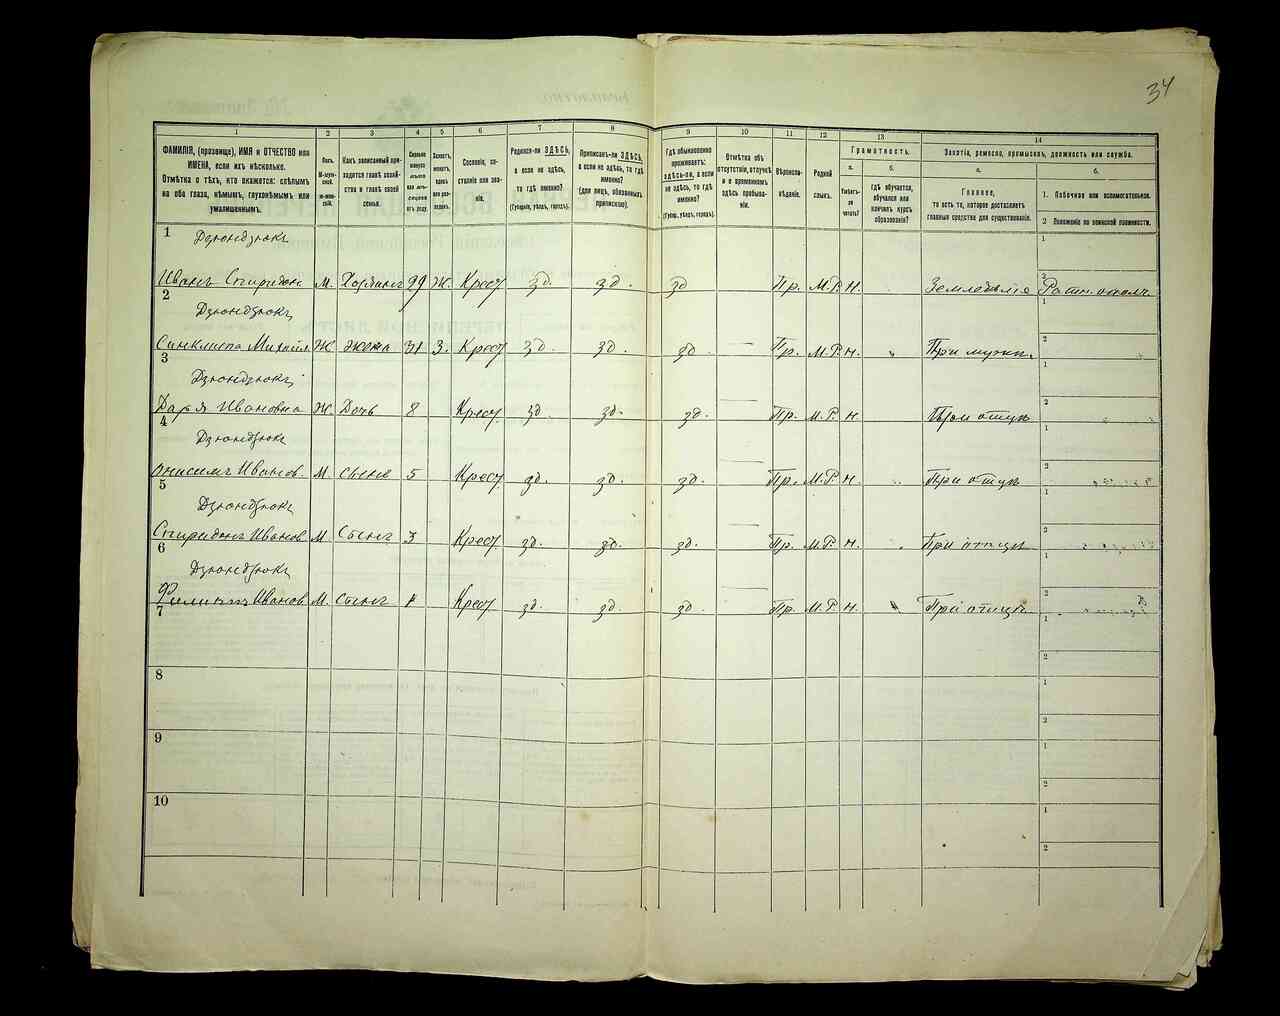 34
1 2 3 4 5 6 7 8 9 10 11 12 13 14
ФАМИЛІЯ, (прозвище), ИМЯ и ОТЧЕСТВО или ИМЕНА, если ихъ нѣсколько.
Отмѣтка о тѣхъ, кто окажется: слѣпымъ на оба глаза, нѣмымъ, глухонѣмымъ или умалишеннымъ.
Полъ. М-мужской. Ж-женскій.
Какъ записанный приходится главѣ хозяйства и главѣ своей семьи.
Сословіе, состояніе или званіе.
Родился-ли ЗДѢСЬ, а если не здѣсь, то гдѣ именно?
(Губернія, уѣздъ, городъ).
Приписанъ-ли ЗДѢСЬ, а если не здѣсь, то гдѣ именно?
(для лицъ, обязанныхъ припискою).
Гдѣ обыкновенно проживаетъ: здѣсь-ли, а если не здѣсь, то гдѣ именно?
(Губерн., уѣздъ, городъ).
Отмѣтка объ отсутствіи, отлучкѣ и о временномъ здѣсь пребываніи.
Вѣроисповѣданіе.
Родной языкъ.
Грамотность.
а. Умѣетъ-ли читать?
б. Гдѣ обучается, обучался или кончилъ курсъ образованія?
Занятія, ремесло, промыселъ, должность или служба.
а. Главное, то есть то, которое доставляетъ главныя средства для существованія.
б.
1. Побочное или вспомогательное.
2 Положеніе по воинской повинности.
1 Дзюндзюкъ 1
Иванъ Спиридон М. Хозяинъ 39 Ж. Крест зд. зд. зд Пр. М.Р. Н. Земледѣліе 2 Ратн. ополч.
2 Дзюндзюкъ 1
Синклита Михайл Ж жена 31 З. Крест зд. зд. зд Пр. М.Р. н. При мужѣ. 2
3 Дзюндзюкъ 1
Дарья Ивановна Ж. Дочь 8 Крест. зд. зд. зд. Пр. М.Р. н. При отцѣ 2
4 Дзюндзюк 1
Онисимъ Иванов. М. сынъ 5 Крест зд. зд. зд. Пр. М.Р. н. При отцѣ 2
5 Дзюндзюкъ 1
Спиридонъ Иванов М. Сынъ 3 Крест. зд. зд. зд. Пр. М.Р. н. При отцѣ 2
6 Дзюндзюкъ 1
Филиппъ Иванов М. Сынъ 1 Крест зд. зд. зд. Пр. М.Р. н. При отцѣ. 2
7 1
2
8 1
2
9 1
2
10 1
2